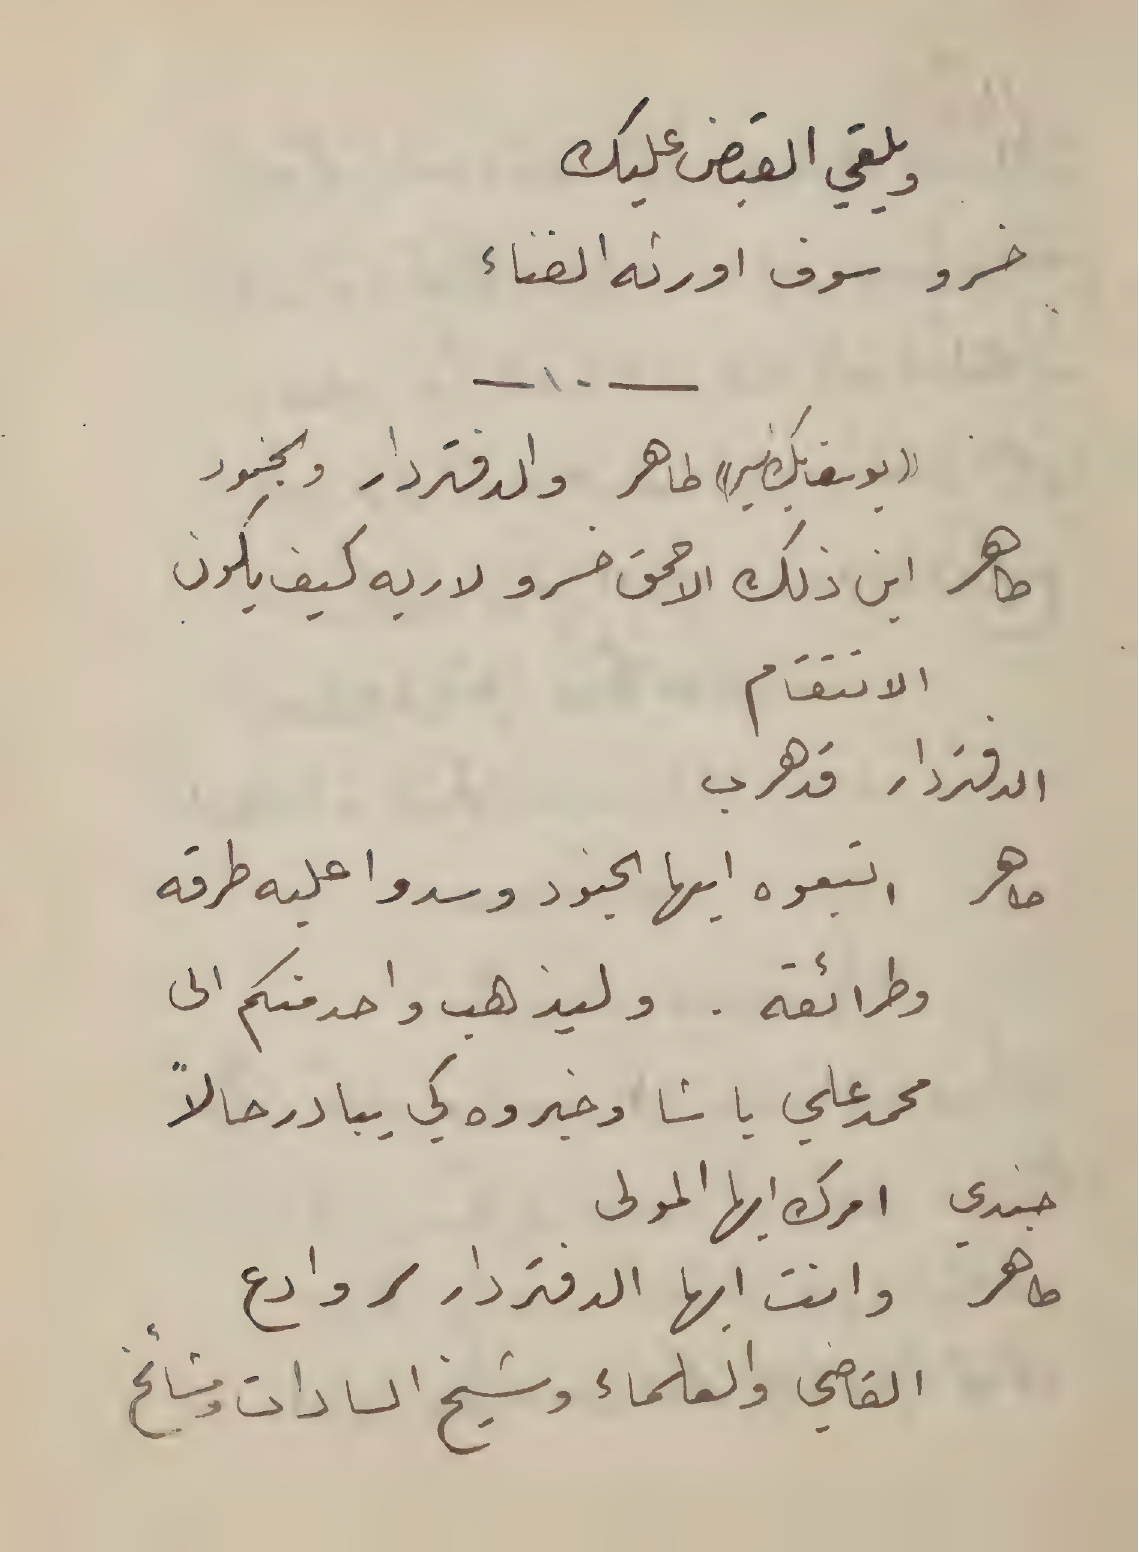 ويلقي القبض عليك
خسرو سوف اورثه الفناء
— ١٠ —
طاهر والدفتردار والجنود
طاهر اين ذلك الاحمق خسرو لاريه كيف يكون
الانتقام
الدفتردار قد هرب
طاهر اتبعوه ايها الجنود وسدوا عليه طرقه
وطرائقه . وليذهب واحد منكم الى
محمد علي باشا وخبروه كي يبادر حالاً
جندي امرك ايها المولى
طاهر وانت ايها الدفتردار سر وادع
القاضي والعلماء وشيخ السادات ومشائخ